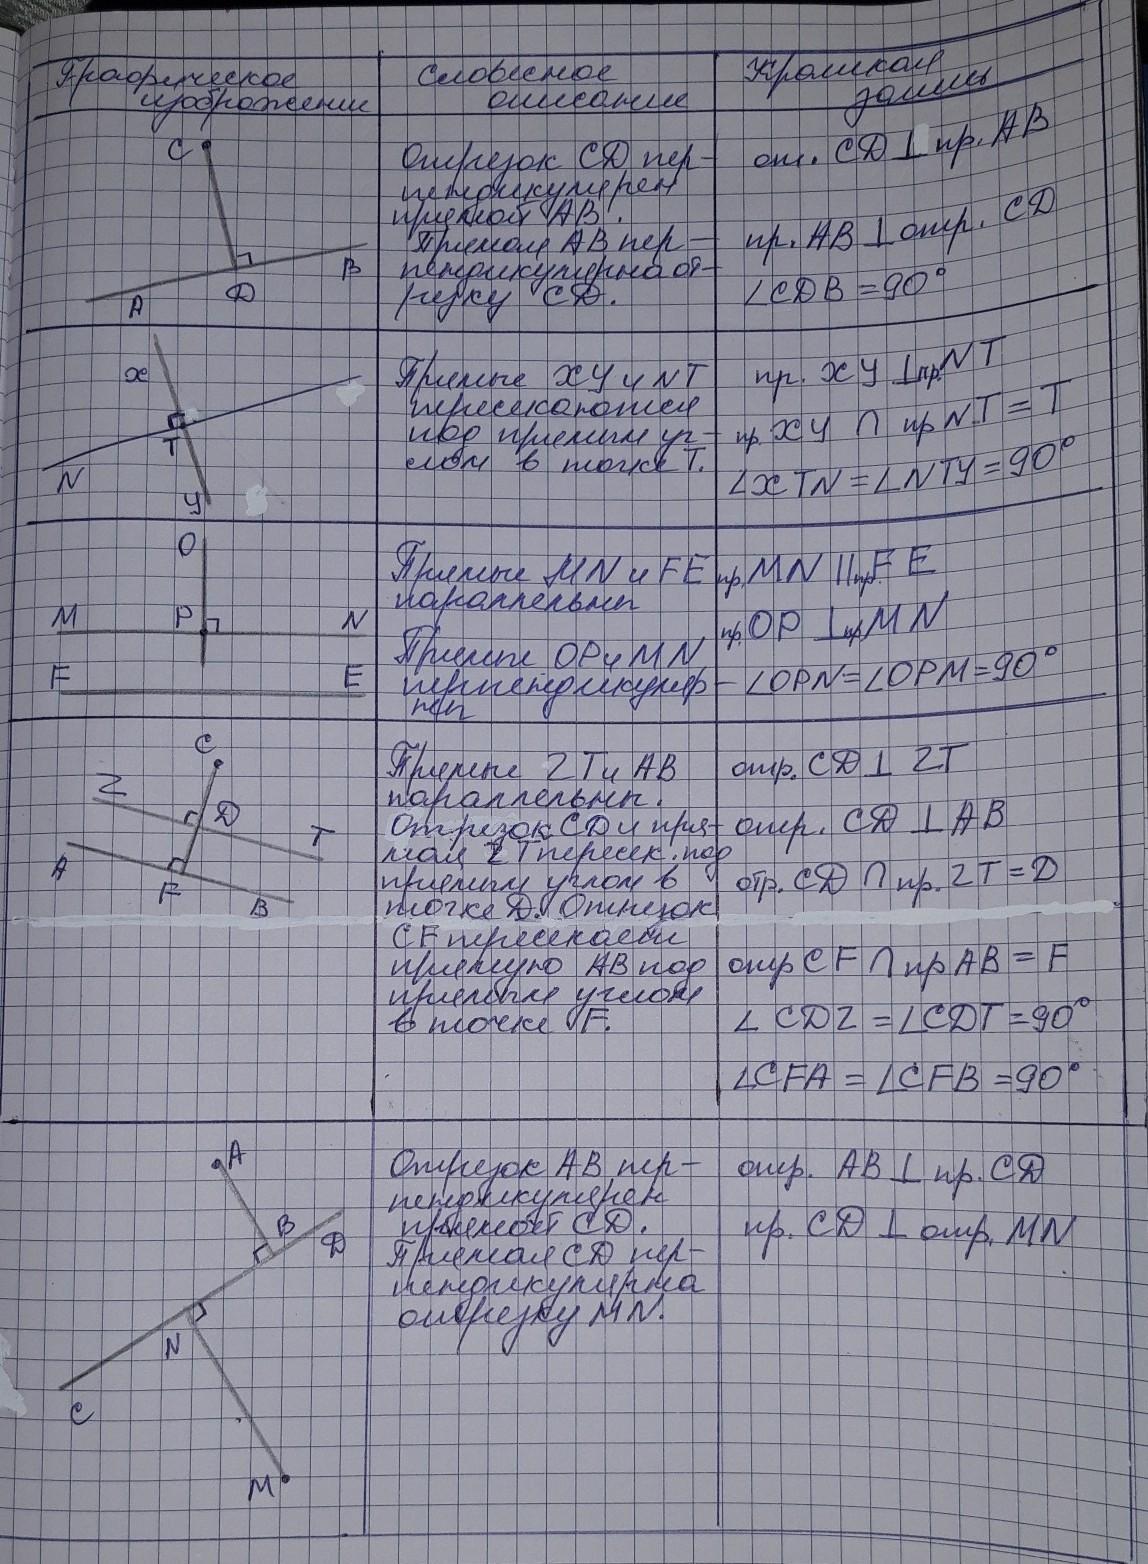 Графическое
изображение
Словесное
описание
Краткая
запись
C
A
D
B
Отрезок CD пер-
пендикулярен
прямой AB.
Прямая AB пер-
пендикулярна от-
резку CD.
отр. CD ⊥ пр. AB
пр. AB ⊥ отр. CD
∠CDB = 90°
X
N
T
Y
Прямые XY и NT
пересекаются
под прямым уг-
лом в точке T.
пр. XY ⊥ пр. NT
пр. XY ∩ пр NT = T
∠XTN = ∠NTY = 90°
O
M P N
F E
Прямые MN и FE
параллельны
Прямые OP и MN
перпендикуляр-
ны
пр. MN || пр. FE
пр. OP ⊥ пр MN
∠OPN = ∠OPM = 90°
C
Z
D
T
A
F
B
Прямые ZT и AB
параллельны.
Отрезок CD и пря-
мая ZT пересек. под
прямым углом в
точке D. Отрезок
CF пересекает
прямую AB под
прямым углом
в точке F.
отр. CD ⊥ ZT
отр. CD ⊥ AB
отр. CD ∩ пр. ZT = D
отр CF ∩ пр AB = F
∠CDZ = ∠CDT = 90°
∠CFA = ∠CFB = 90°
A
B
D
N
C
M
Отрезок AB пер-
пендикулярен
прямой CD.
Прямая CD пер-
пендикулярна
отрезку MN.
отр. AB ⊥ пр. CD
пр. CD ⊥ отр. MN